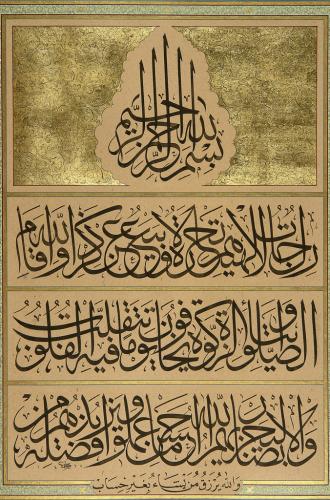 بسم الله الرحمن الرحيم
رجال لا تلهيهم تجارة ولا بيع عن ذكر الله وإقام
الصلوة وإيتاء الزكوة يخافون يوما تتقلب فيه القلوب
والأبصار ليجزيهم الله أحسن ما عملوا ويزيدهم من فضله
والله يرزق من يشاء بغير حساب